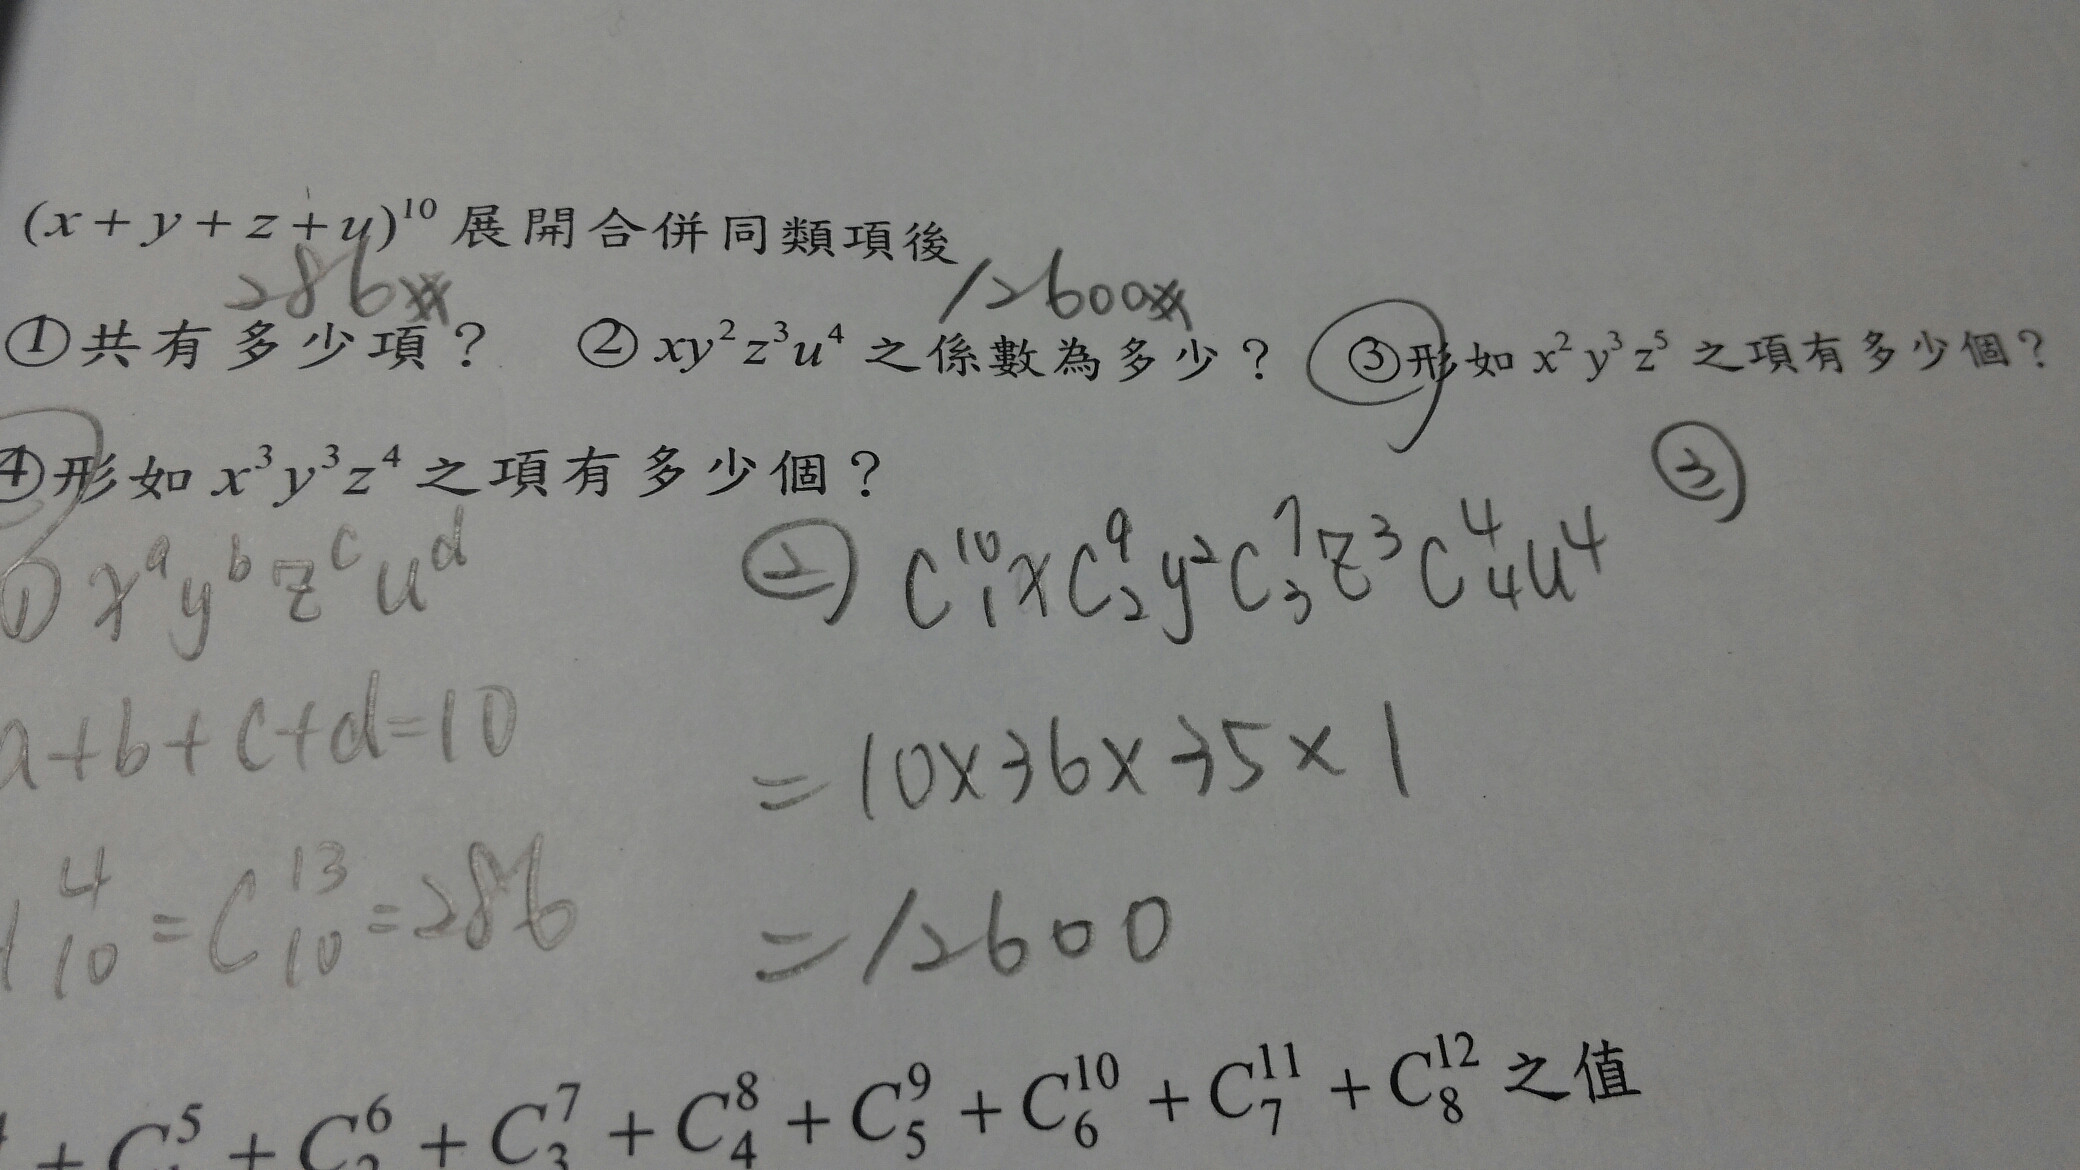 (x+y+z+u)¹⁰ 展開合併同類項後
286 12600
①共有多少項? ②xy²z³u⁴ 之係數為多少? ③形如 x²y³z⁵ 之項有多少個?
④形如 x³y³z⁴ 之項有多少個?
① xᵃyᵇzᶜuᵈ
a+b+c+d=10
H⁴₁₀=C¹³₁₀=286
② C¹⁰₁xC⁹₂y²C⁷₃z³C⁴₄u⁴
=10×36×35×1
=12600
③
+C⁵+C⁶₂+C⁷₃+C⁸₄+C⁹₅+C¹⁰₆+C¹¹₇+C¹²₈ 之值